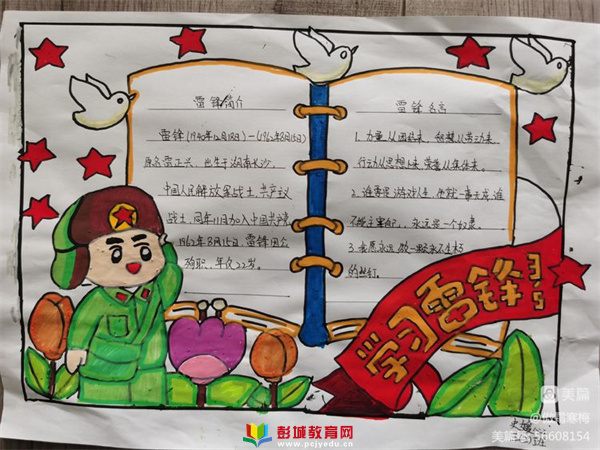 雷锋简介
雷锋(1940年12月18日)—1962年8月15日)
原名雷正兴,出生于湖南长沙,
中国人民解放军战士,共产主义
战士,同年11月加入中国共产党
1962年8月15日,雷锋因公
殉职,年仅22岁。
雷锋名言
1.力量从团结来,智慧从劳动来,
行动从思想来,荣誉从集体来。
2.谁要是游戏人生,他就一事无成,谁
不能主宰自己,永远是一个奴隶。
3.我愿永远做一颗永不生锈
的螺钉。
学习雷锋
3.5
美篇
寒梅
美篇
56608154
彭城教育网
www.pcjyedu.cn